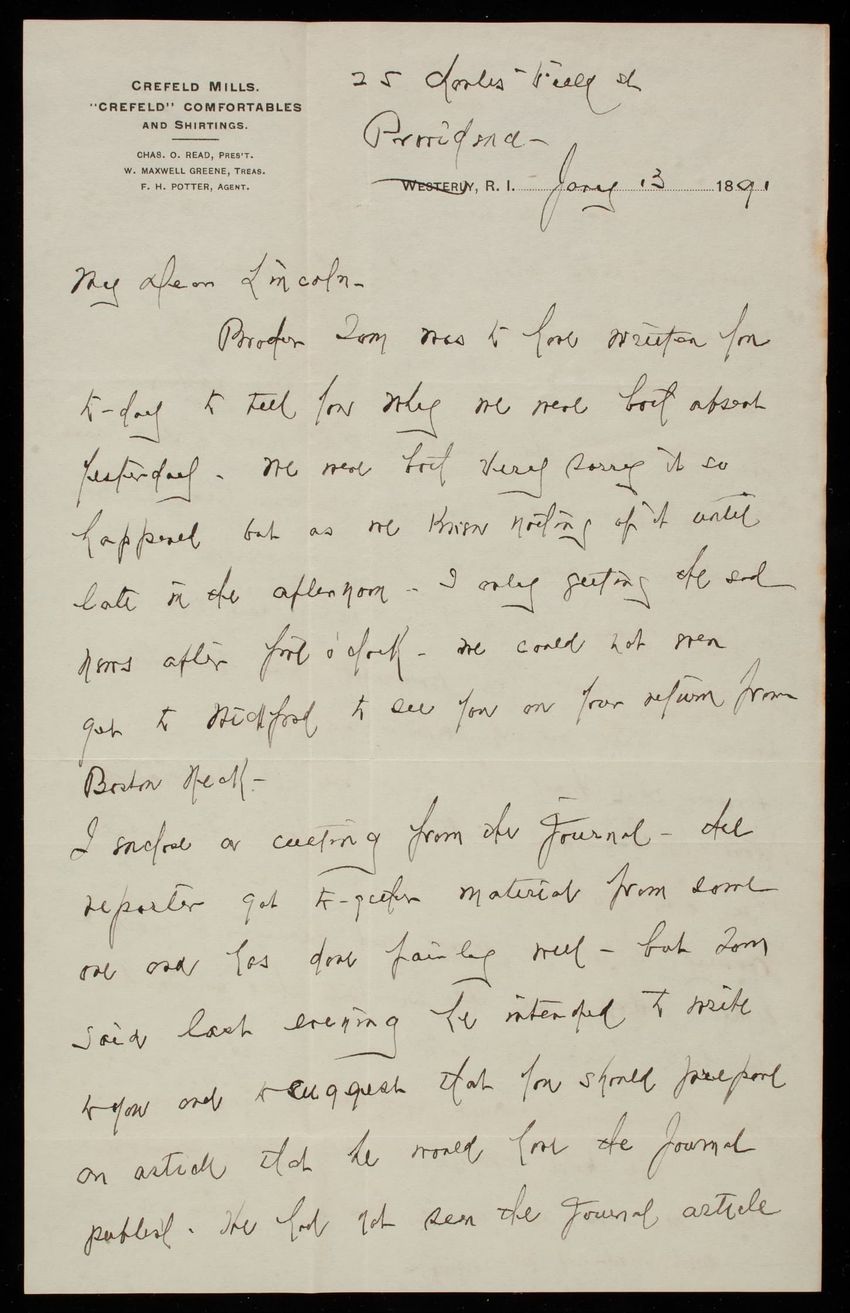 CREFELD MILLS.
"CREFELD" COMFORTABLES
AND SHIRTINGS.
CHAS. O. READ, PRES'T.
W. MAXWELL GREENE, TREAS.
F. H. POTTER, AGENT.
25 Charles Field St
Providence -
WESTERLY, R. I. Jany 13 1891
My Dear Lincoln -
Brother Tom was to have written you
to-day to tell you why we were both absent
yesterday. We were both very sorry it so
happened but as we knew nothing of it until
late in the afternoon - I only getting the sad
news after five o'clock - we could not even
get to Wickford to see you on your return from
Boston Neck -
I enclose a cutting from the Journal - the
reporter got to-gether material from some
one and has done fairly well - but Tom
said last evening he intended to write
to you and to suggest that you should prepare
an article that he would have the Journal
publish. He had not seen the Journal article